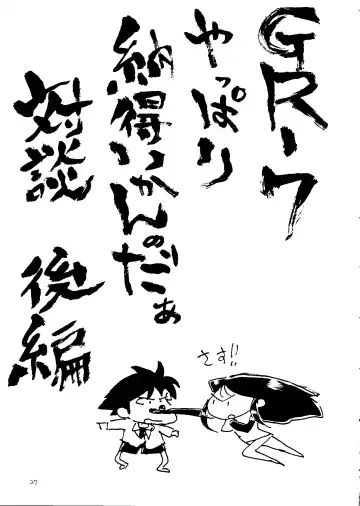 GR-7
やっぱり
納得いかんのだぁ
対談 後編
さす!!
27